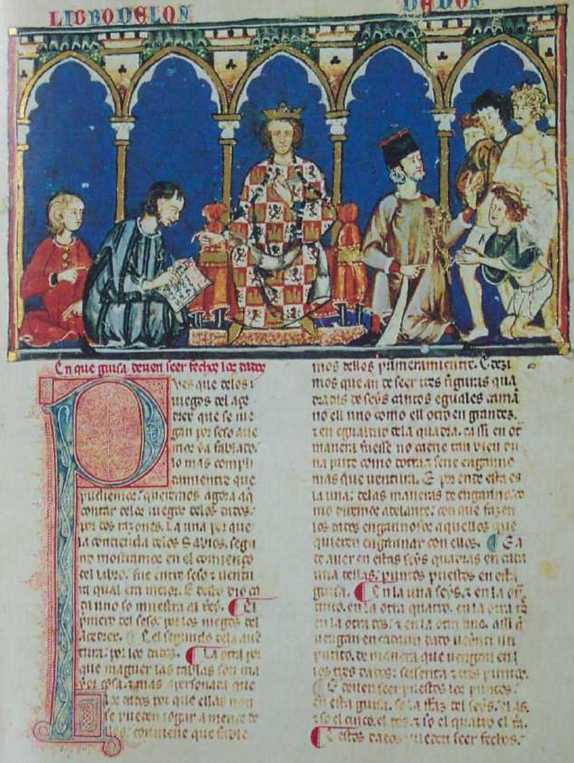 LIBRO DELOS DADOS
En que guisa deuen seer fechos los dados
Pues que delos i
uegos del açe
drex que se iue
gan por seso aue
mos ya fablado.
lo mas compli
damientre que
pudiemos; queremos agora aq̃
contar delos iuegos delos dados.
por dos razones. La una por que
la contienda delos sabios. segũ
mostramos en el comienço
del libro. fue entre seso & uentu
ra qual era meior. E desto dio ca
da uno so muestra al Rey. El
primero del seso por los iuegos del
acedrex. E el segundo dela auẽ
tura; por los dados. La otra por
que maguer las tablas son ma
yor cosa. & mas apersonada que
los dados por que ellas non
se pueden iogar a menos de
llos. conuiene que fable
mos dellos primeramientre. E dezi
mos que an de seer tres figuras qua
dradas de seys cantos eguales tama
no el uno como el otro en grandez.
& en egualdad dela quadra. ca si en otra
manera fuesse no caerie tan bien en
una parte como otra. & serie enganno
mas que uentura. E por ende esta es
la una; delas maneras de enganno. co
mo diremos adelante. con que fazen
los dados engannosos aquellos que
quieren engannar con ellos. E a
de auer en estas seys quadras en cada
una dellas; puntos puestos en esta
guisa. En la una seys. & en la otra
cinco. en la otra quatro. en la otra tres
en la otra dos. & en la otra uno. assi q̃
uengan en cada un dado ueynt & un
punto. de manera que uengan en
los tres dados; sessaenta & tres puntos.
E deuen seer puestos los puntos.
en esta guisa. so la faz del seys. el as.
& so el cinco. el dos. & so el quatro el
E estos dados pueden seer fechos.